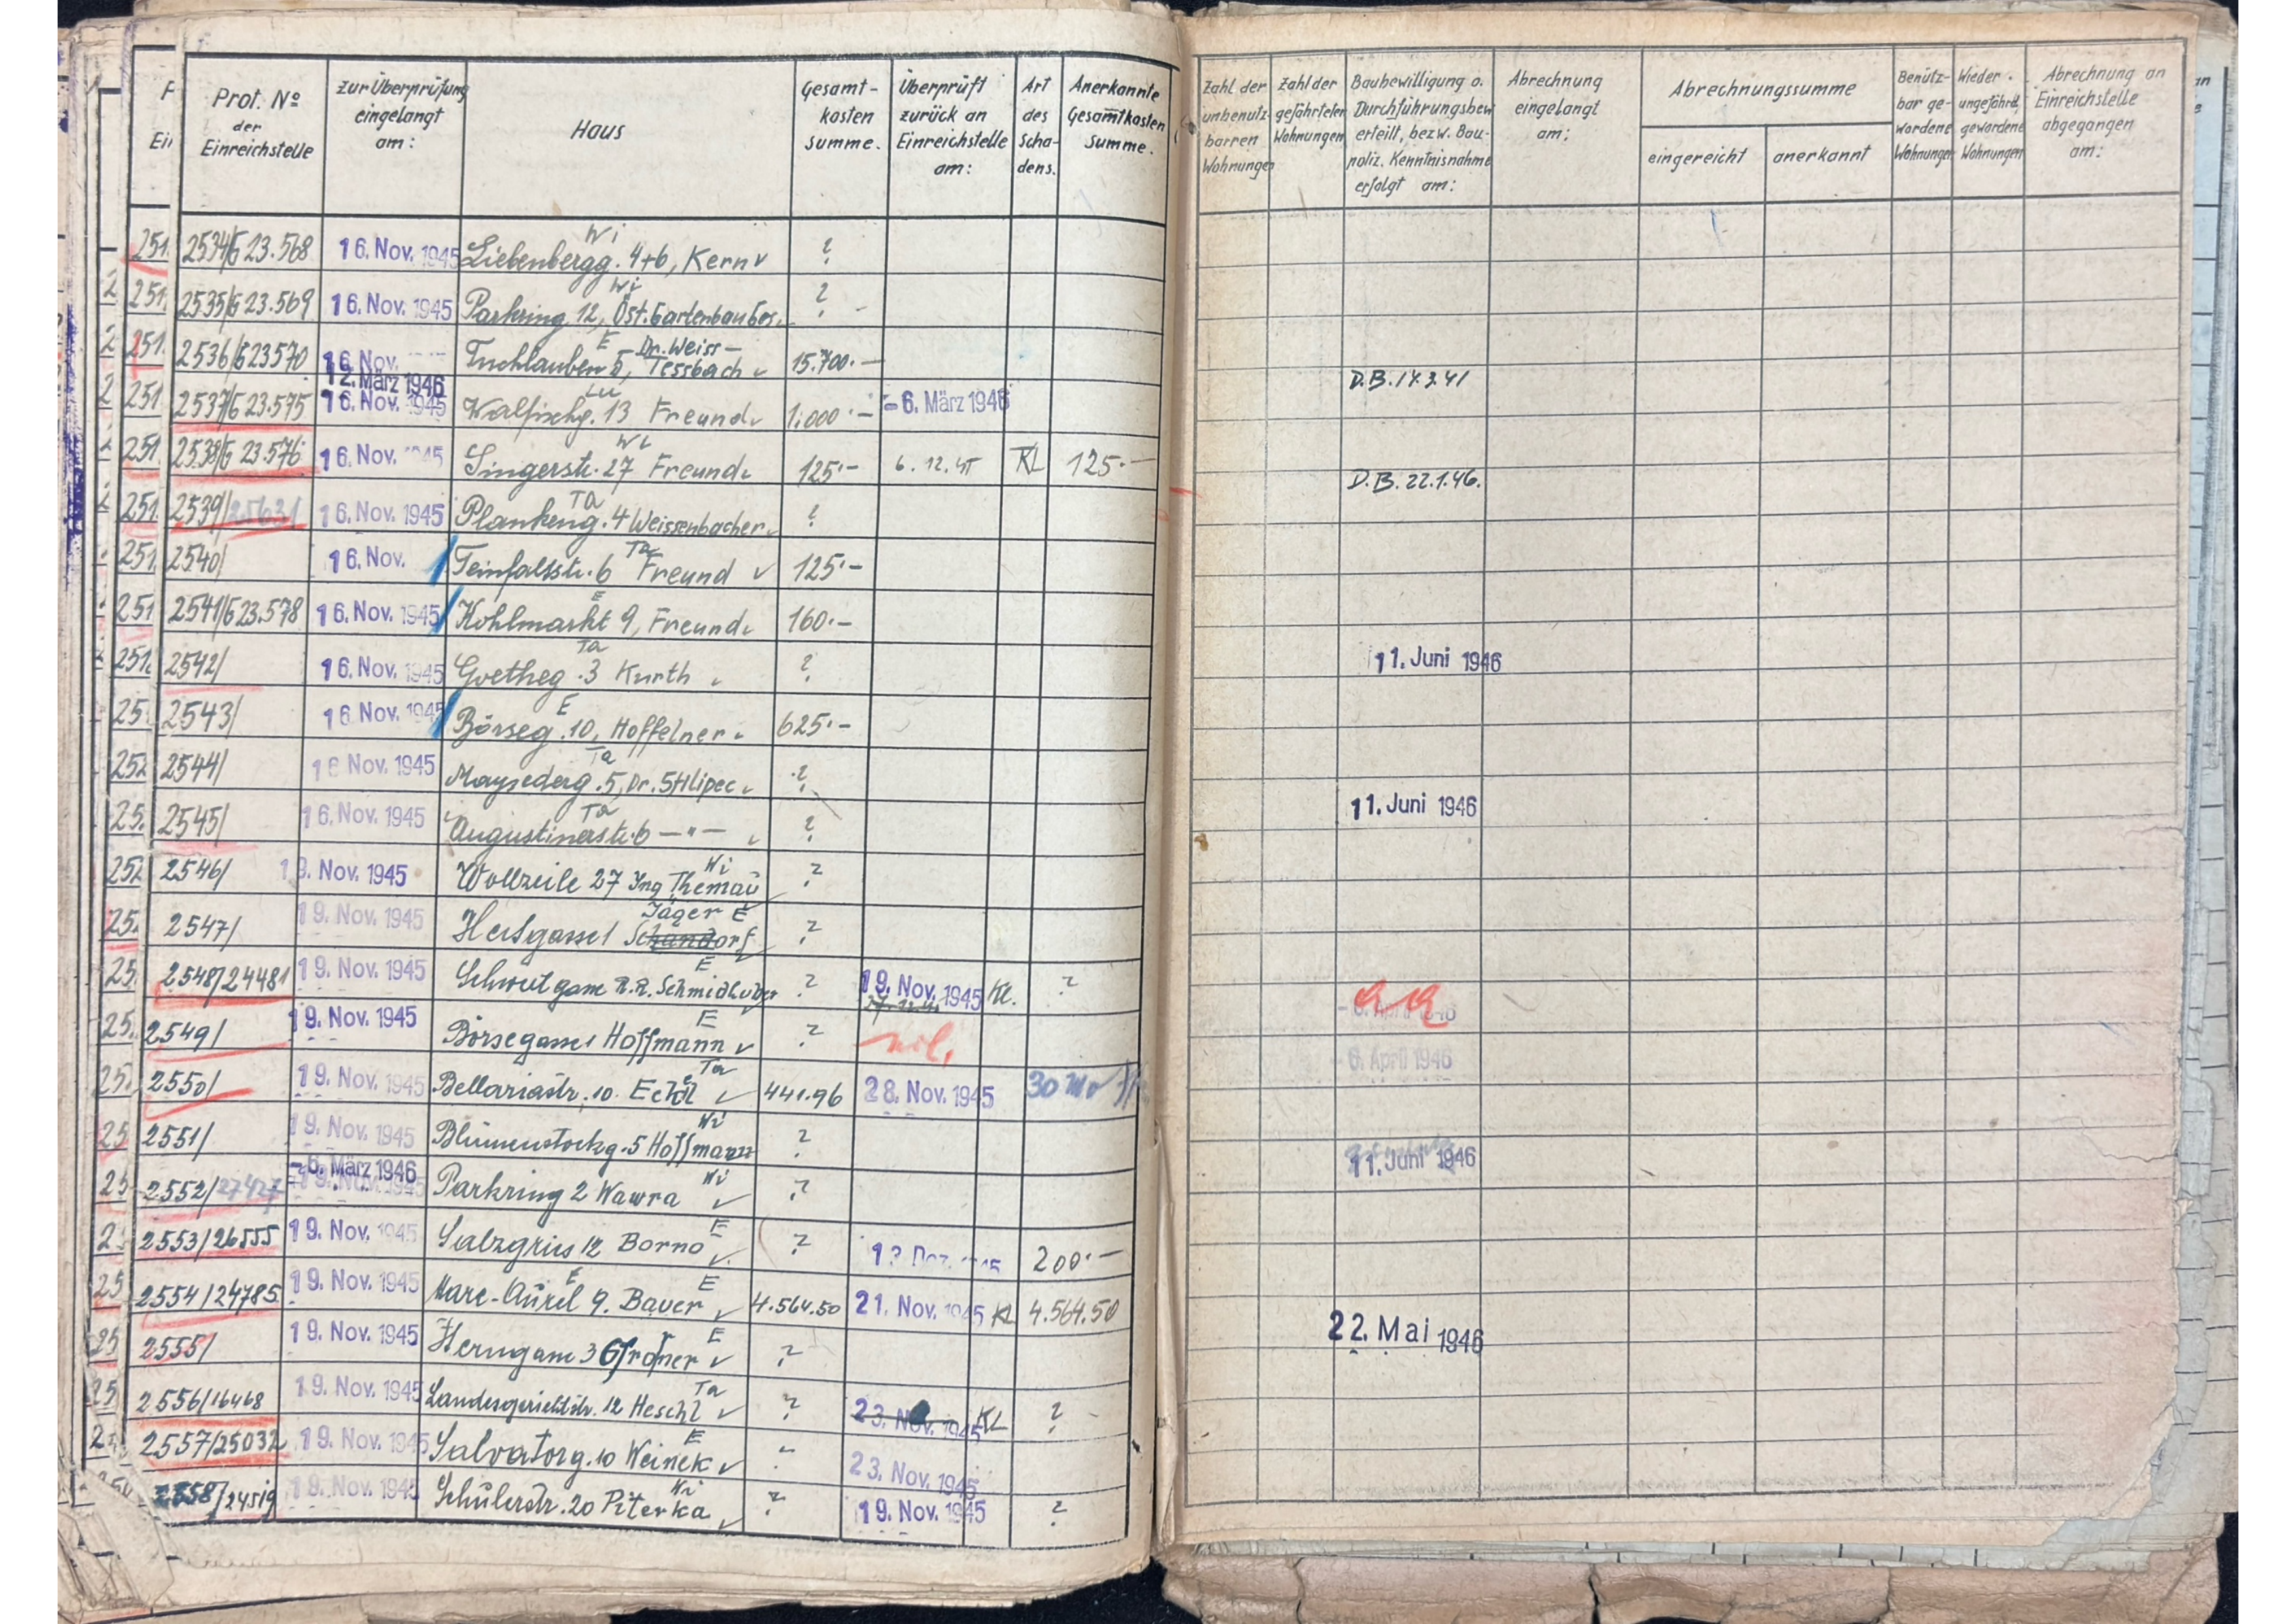 Prot. No der Einreichstelle
zur Überprüfung eingelangt am:
Haus
Gesamt-kosten summe.
Überprüft zurück an Einreichstelle am:
Art des Scha-dens.
Anerkannte Gesamtkosten Summe.
Zahl der unbenutz-barren Wohnungen
Zahl der gefährteten Wohnungen
Baubewilligung o. Durchführungsbew erteilt, bezw. Bau-poliz. Kenntnisnahme erfolgt am:
Abrechnung eingelangt am:
Abrechnungssumme
eingereicht
anerkannt
Benütz-bar ge-wordene Wohnungen
Wieder. ungefährd. gewordene Wohnungen
Abrechnung an Einreichstelle abgegangen am:
251 2534/G 23.568 16. Nov. 1945 Wi Liebenbergg. 4+6, Kern ?
251 2535/G 23.569 16. Nov. 1945 Wi Parkring 12, Öst. Gartenbauges. ?
251 2536/G 23570 16. Nov. E Tuchlauben 5, Dr. Weiss-Tessbach 15.700.—
251 2537/G 23.575 12. März 1946 16. Nov. 1945 Lu Walfischg. 13 Freund 1.000.— -6. März 1946 D.B. 14.3.41
251 2538/G 23.576 16. Nov. 1945 Wi Singerstr. 27 Freund 125.— 6.12.45 KL 125.—
D.B. 22.1.46.
251 2539/ 16. Nov. 1945 Ta Plankeng. 4 Weissenbacher ?
251 2540/ 16. Nov. Ta Teinfaltstr. 6 Freund 125.—
251 2541/G 23.578 16. Nov. 1945 E Kohlmarkt 9, Freund 160.—
251 2542/ 16. Nov. 1945 Ta Goetheg. 3 Kurth ? 11. Juni 1946
25 2543/ 16. Nov. 1945 E Börseg. 10, Hoffelner 625.—
252 2544/ 16 Nov. 1945 Ta Maysederg. 5, Dr. Stlipec ?
25 2545/ 16. Nov. 1945 Ta Augustinerstr. 6 —"— ? 11. Juni 1946
252 2546/ 19. Nov. 1945 Wollzeile 27 Ing Themau Wi ?
25 2547/ 19. Nov. 1945 Hessgasse 1 Jäger E ?
25 2548/24481 19. Nov. 1945 E R.R. Schmidhuber ? 19. Nov. 1945 KL. ?
- 6. April 1946
25 2549/ 19. Nov. 1945 Börsegasse 1 Hoffmann E ? nil.
- 6. April 1946
25 2550/ 19. Nov. 1945 Bellariastr. 10. Eckl Ta 441.96 28. Nov. 1945 30
25 2551/ 19. Nov. 1945 Blumenstockg. 5 Hoffmann Wi ?
11. Juni 1946
25 2552/27427 -6. März 1946 19. Nov. 1945 Parkring 2 Wawra Wi ?
2 2553/26555 19. Nov. 1945 Salzgries 12 Borno E ? 200.—
25 2554/24785 19. Nov. 1945 Marc-Aurel 9. Bauer E 4.564.50 21. Nov. 1945 KL 4.564.50
25 2555/ 19. Nov. 1945 Herrengasse 3 E ? 22. Mai 1946
25 2556/16468 19. Nov. 1945 Landesgerichtstr. 12 Heschl Ta ? 23. Nov. 1945 KL ?
2 2557/25032 19. Nov. 1945 Salvatorg. 10 Weinek E 23. Nov. 1945
2558/24519 19. Nov. 1945 Schulerstr. 20 Piterka Wi ? 19. Nov. 1945 ?